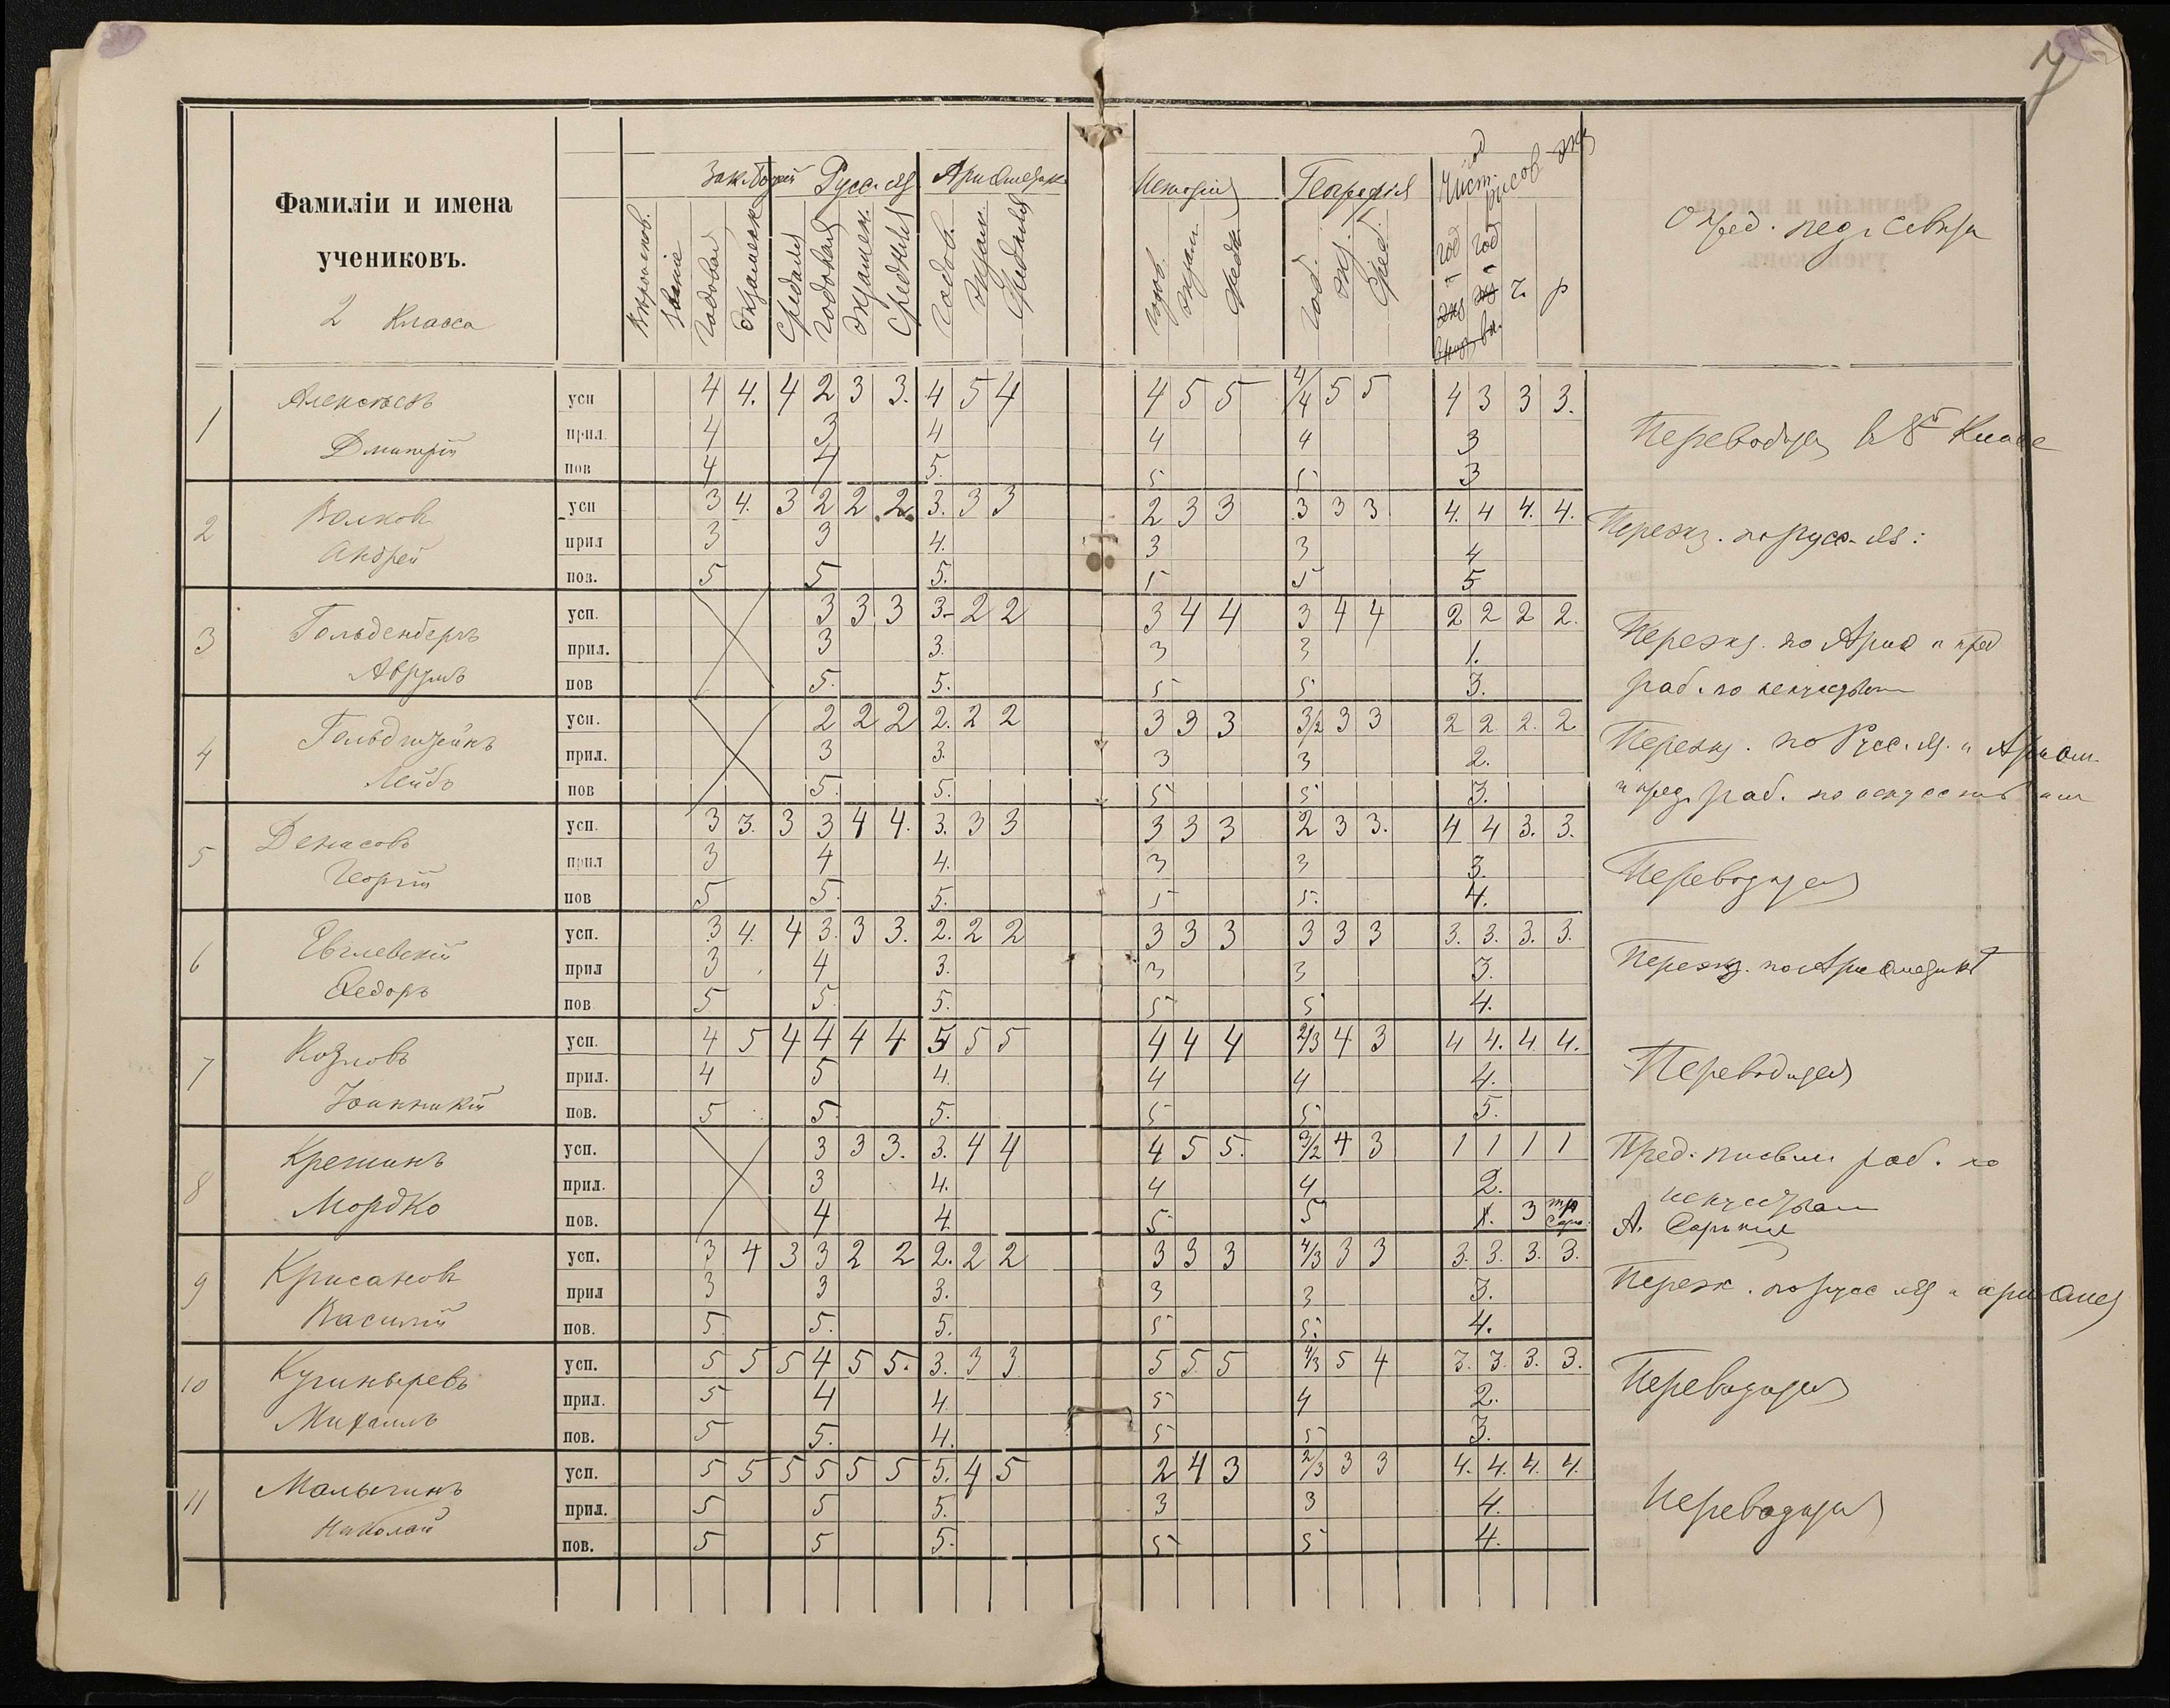 7
Фамиліи и имена
учениковъ.
2 Класса
Зак. Божій Русс. яз Ариѳметик
Исторія Географія Чист. Рисов экз
Опред. пед. совѣта
годовая экзаменск средняя годовая экзамен. средняя годов. экзам. средняя
годов. экзам средн. год. экз. сред. год год ч. р
1 Алексѣевъ усп 4 4. 4 2 3 3. 4 5 4 4 5 5 4/4 5 5 4 3 3 3.
Дмитрій прил. 4 3 4 4 4 3
пов 4 4 5. 5 5 3
Переводится в 3й Классъ
2 Волковъ усп 3 4. 3 2 2 2. 3. 3 3 2 3 3 3 3 3 4. 4 4. 4.
Андрей прил 3 3 4. 3 3 4
пов. 5 5 5. 5 5 5
Переэкз. по русс. яз:
3 Гольденбергъ усп. 3 3 3 3- 2 2 3 4 4 3 4 4 2 2 2 2.
Аврумъ прил. 3 3. 3 3 1.
пов 5. 5. 5 5 3.
Переэкз. по Ариѳ и пред
раб. по искусствам
4 Гольдштейнъ усп. 2 2 2 2. 2 2 3 3 3 3/2 3 3 2 2 2. 2
Лейбъ прил. 3 3. 3 3 2.
пов 5. 5. 5 5 3.
Переэкз. по Русс. яз. и Ариѳм.
и пред. раб. по искусствам
5 Денисовъ усп. 3 3. 3 3 4 4. 3. 3 3 3 3 3 2 3 3. 4 4 3. 3.
Георгій прил 3 4 4. 3 3 3.
пов 5 5. 5. 5 5. 4.
Переводится
6 Евглевскій усп. 3 4. 4 3. 3 3. 2. 2 2 3 3 3 3 3 3 3. 3. 3. 3.
Ѳедоръ прил 3 4 3. 3 3 3.
пов 5 5. 5. 5 5 4.
Переэкз. по Ариѳметикѣ
7 Козловъ усп. 4 5 4 4 4 4 5 5 5 4 4 4 2/3 4 3 4 4. 4 4.
Іоанникій прил. 4 5 4. 4 4 4.
пов. 5 5. 5. 5 5 5.
Переводится
8 Кремянъ усп. 3 3 3. 3. 4 4 4 5 5. 3/2 4 3 1 1 1 1
Мордко прил. 3 4. 4 4 2.
пов. 4 4. 5 5 3
Пред. письм раб. по
искусствам
9 Крисановъ усп. 3 4 3 3 2 2 2. 2 2 3 3 3 4/3 3 3 3. 3. 3. 3.
Василій прил 3 3 3. 3 3 3.
пов. 5. 5. 5. 5 5. 4.
Переэк. по русс яз и ариѳмет
10 усп. 5 5 5 4 5 5. 3. 3 3 5 5 5 4/3 5 4 3. 3. 3. 3.
Михаилъ прил. 5 4 4. 5 4 2.
пов. 5 5. 4. 5 5 3.
Переводится
11 Малыгинъ усп. 5 5 5 5 5 5 5. 4 5 2 4 3 2/3 3 3 4. 4. 4. 4.
Николай прил. 5 5 5. 3 3 4.
пов. 5 5 5. 5 5 4.
Переводится